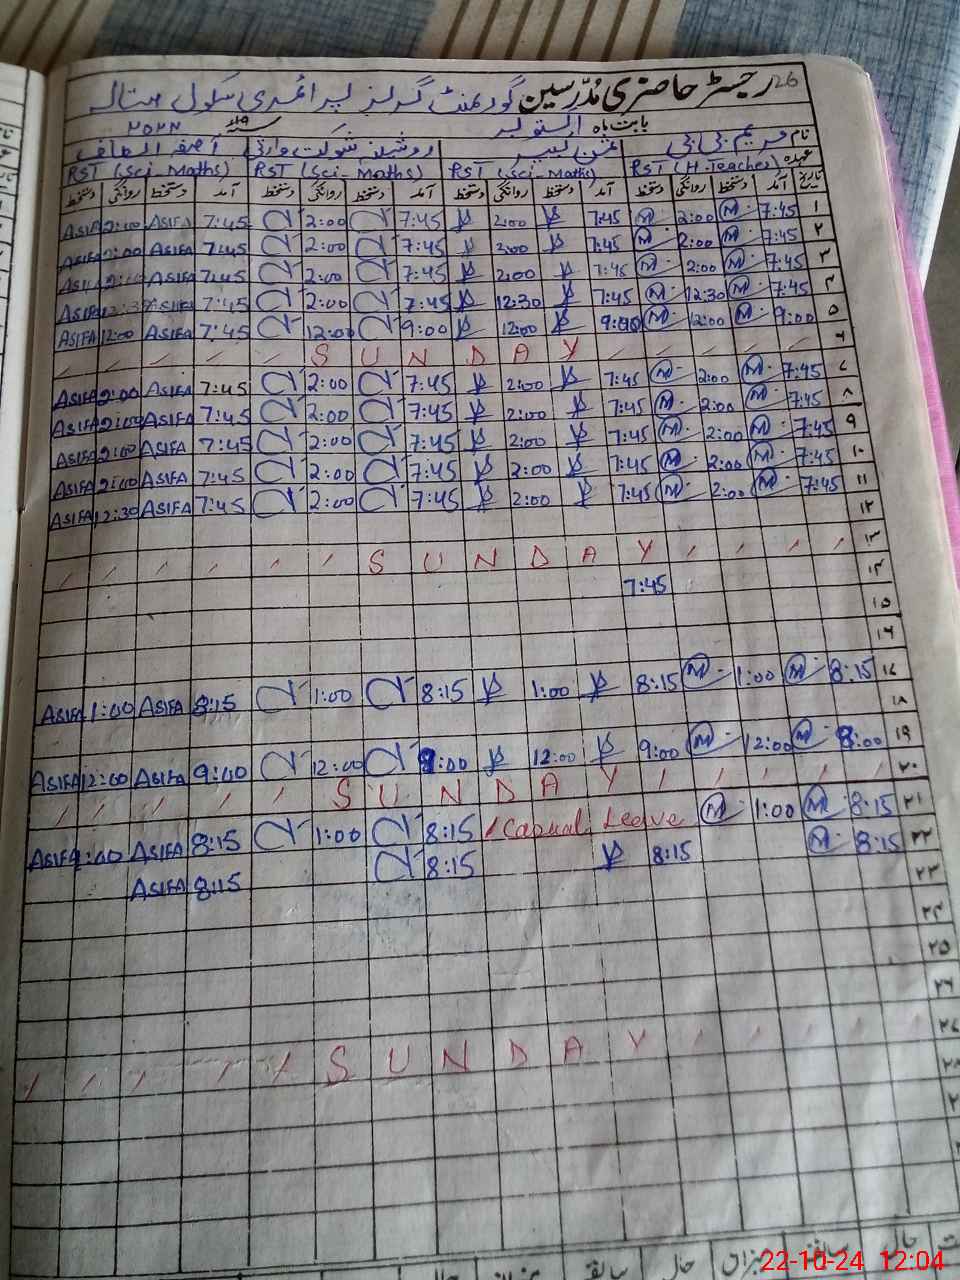 26 رجسٹر حاضری مُدرسین گورنمنٹ گرلز پرائمری سکول
بابت ماہ اکتوبر ۲۰۲۴
نام مریم بی بی روشینہ شوکت آصفہ الطاف
عہدہ RST (H-Teacher) RST (Sci-Maths) RST (Sci-Maths) RST (Sci-Maths)
تاریخ آمد دستخط روانگی دستخط آمد دستخط روانگی دستخط آمد دستخط روانگی دستخط آمد دستخط روانگی دستخط
ASIFA 2:00 ASIFA 7:45 2:00 7:45 2:00 7:45 M 2:00 M 7:45 ۱
ASIFA 2:00 ASIFA 7:45 2:00 7:45 2:00 7:45 M 2:00 M 7:45 ۲
ASIFA 2:00 ASIFA 7:45 2:00 7:45 2:00 7:45 M 2:00 M 7:45 ۳
ASIFA 12:30 ASIFA 7:45 2:00 7:45 12:30 7:45 M 12:30 M 7:45 ۴
ASIFA 12:00 ASIFA 7:45 12:00 9:00 12:00 9:00 M 12:00 M 9:00 ۵
S U N D A Y ۶
ASIFA 2:00 ASIFA 7:45 2:00 7:45 2:00 7:45 M 2:00 M 7:45 ۷
ASIFA 2:00 ASIFA 7:45 2:00 7:45 2:00 7:45 M 2:00 M 7:45 ۸
ASIFA 2:00 ASIFA 7:45 2:00 7:45 2:00 7:45 M 2:00 M 7:45 ۹
ASIFA 2:00 ASIFA 7:45 2:00 7:45 2:00 7:45 M 2:00 M 7:45 ۱۰
ASIFA 12:30 ASIFA 7:45 2:00 7:45 2:00 7:45 M 2:00 M 7:45 ۱۱
۱۲
S U N D A Y ۱۳
7:45 ۱۴
۱۵
۱۶
ASIFA 1:00 ASIFA 8:15 1:00 8:15 1:00 8:15 M 1:00 M 8:15 ۱۷
۱۸
ASIFA 12:00 ASIFA 9:00 12:00 9:00 12:00 9:00 M 12:00 M 8:00 ۱۹
S U N D A Y ۲۰
ASIFA 1:00 ASIFA 8:15 1:00 8:15 Casual Leave M 1:00 M 8:15 ۲۱
ASIFA 8:15 8:15 8:15 M 8:15 ۲۲
۲۳
۲۴
۲۵
۲۶
S U N D A Y ۲۷
۲۸
حال سابقہ میزان حال سابقہ میزان حال
22-10-24 12:04